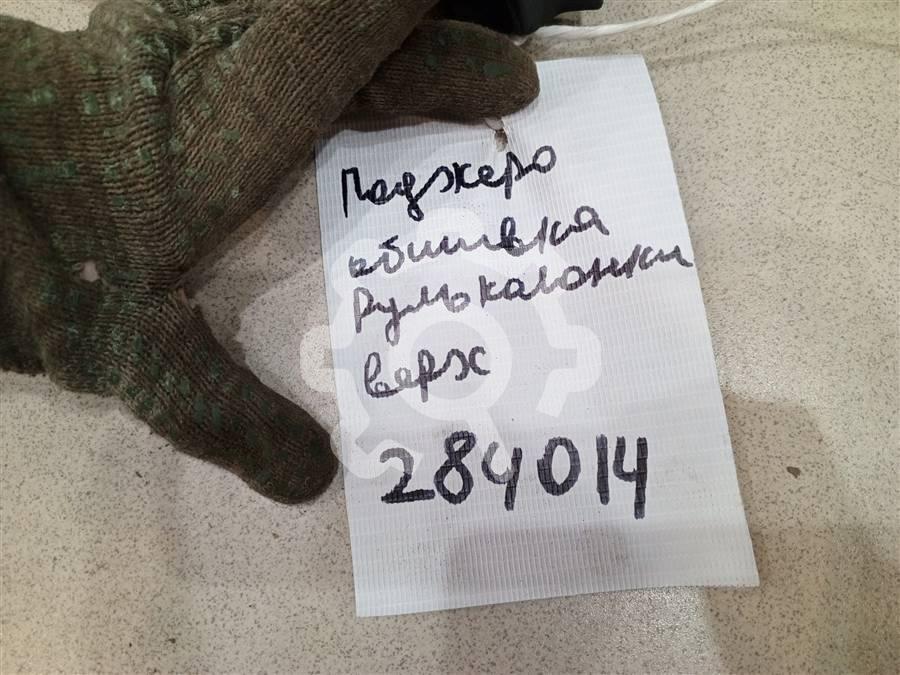 Паджеро
обшивка
рульколонки
верх
284014